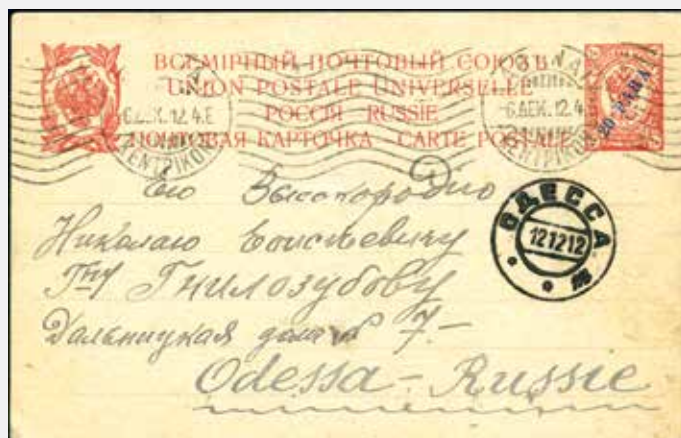 ВСЕМІРНЫЙ ПОЧТОВЫЙ СОЮЗЪ
UNION POSTALE UNIVERSELLE
РОССІЯ RUSSIE
ПОЧТОВАЯ КАРТОЧКА - CARTE POSTALE
20 PARA
6ΔΕΚ.12.4
ΚΕΝΤΡΙΚΟΝ
ОДЕССА
121212
Его Высокородию
Николаю
Г-ну Гнилозубову
Дальницкая домъ № 7.-
Odessa - Russie